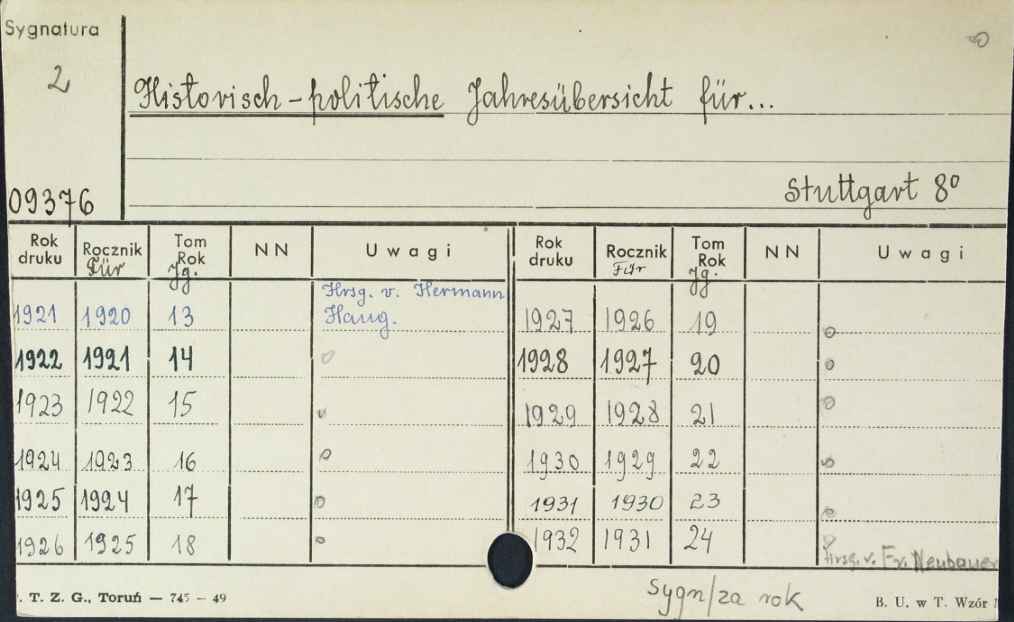 Sygnatura
2
Historisch-politische Jahresübersicht für...
Stuttgart 8°
09376
Rok druku Rocznik Für Tom Rok Jg. NN Uwagi Rok druku Rocznik Für Tom Rok Jg. NN Uwagi
1921 1920 13 Hrsg. v. Hermann Haug. 1927 1926 19
1922 1921 14 1928 1927 20
1923 1922 15 1929 1928 21
1924 1923 16 1930 1929 22
1925 1924 17 1931 1930 23
1926 1925 18 1932 1931 24 Hrsg. v. Fr. Neubauer
Sygn/za rok
. T. Z. G., Toruń — 745 - 49
B. U. w T. Wzór